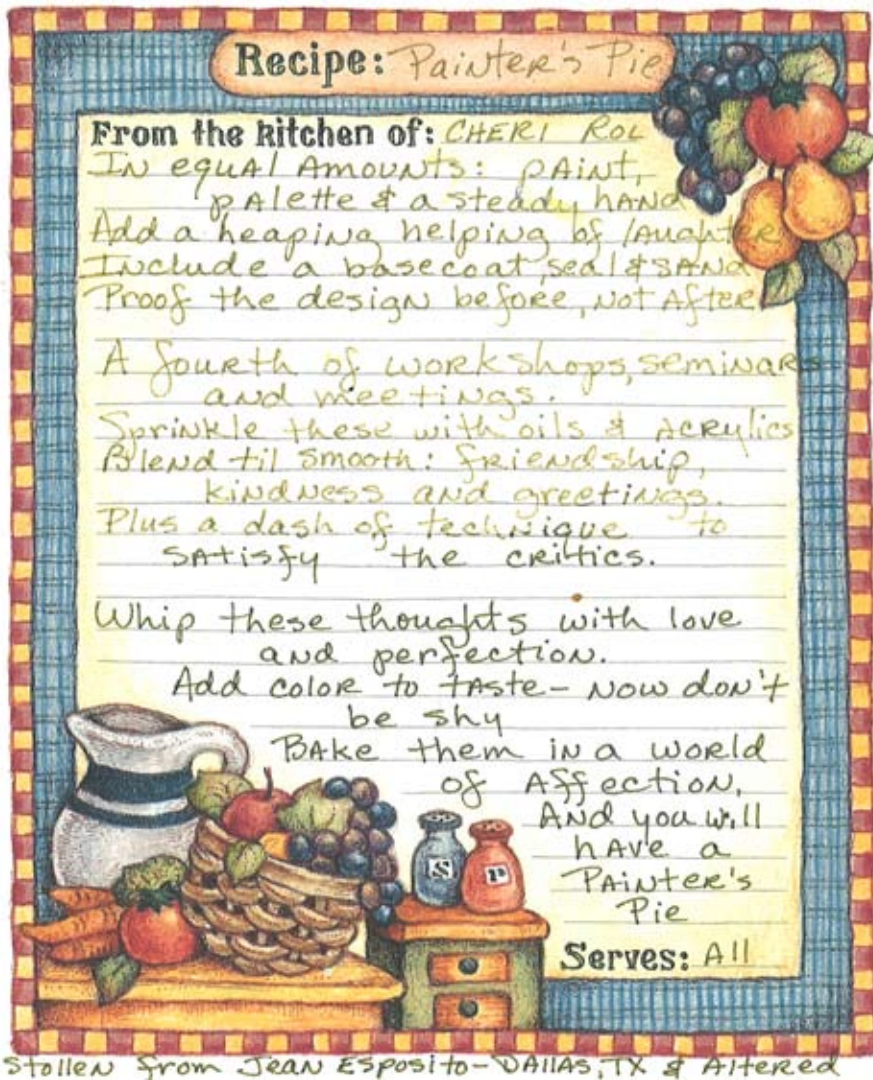 Recipe: Painter's Pie
From the kitchen of: CHERI ROL
IN equAl AMOUNTS: pAiNt,
pAlette & a steady hAND
Add a heapiNg helpiNg of lAughteR
INclude a basecoat, seal & SAND
Proof the desigN before, Not After
A fouRth of woRkshops, semiNaRs
aNd meetiNgs.
SpRiNkle these with oils & ACRylics
BleNd til smooth: fRieNdship,
kiNdNess aNd gReetiNgs.
Plus a dash of techNique to
SAtisfy the cRittics.
Whip these thoughts with love
aNd peRfectioN.
Add coloR to tAste - Now doN't
be shy
BAke them iN a woRld
of AffectioN,
ANd you will
hAve a
PAiNteR's
Pie
S P
Serves: All
Stollen from JeaN Esposito - DAllAs, TX & AlteRed